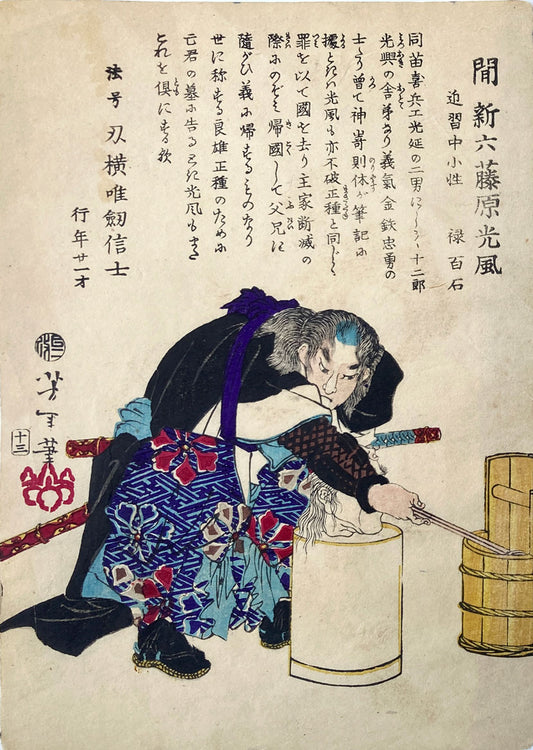 間新六藤原光風
近習中小性 禄百石
同苗喜兵工光延の二男にして十二郎
光興の舎弟なり義氣金鉄忠勇の
士なり曾て神嵜則休が筆記に
援とれバ光風も亦不破正種と同じく
罪を以て國を去り主家断滅の
際にのぞミ帰國して父兄に
随がひ義に帰するものなり
世に称する良雄正種のために
亡君の墓に告る
とれを倶にする歟
法号 刃横唯劔信士
行年廿一才
芳年筆
十三